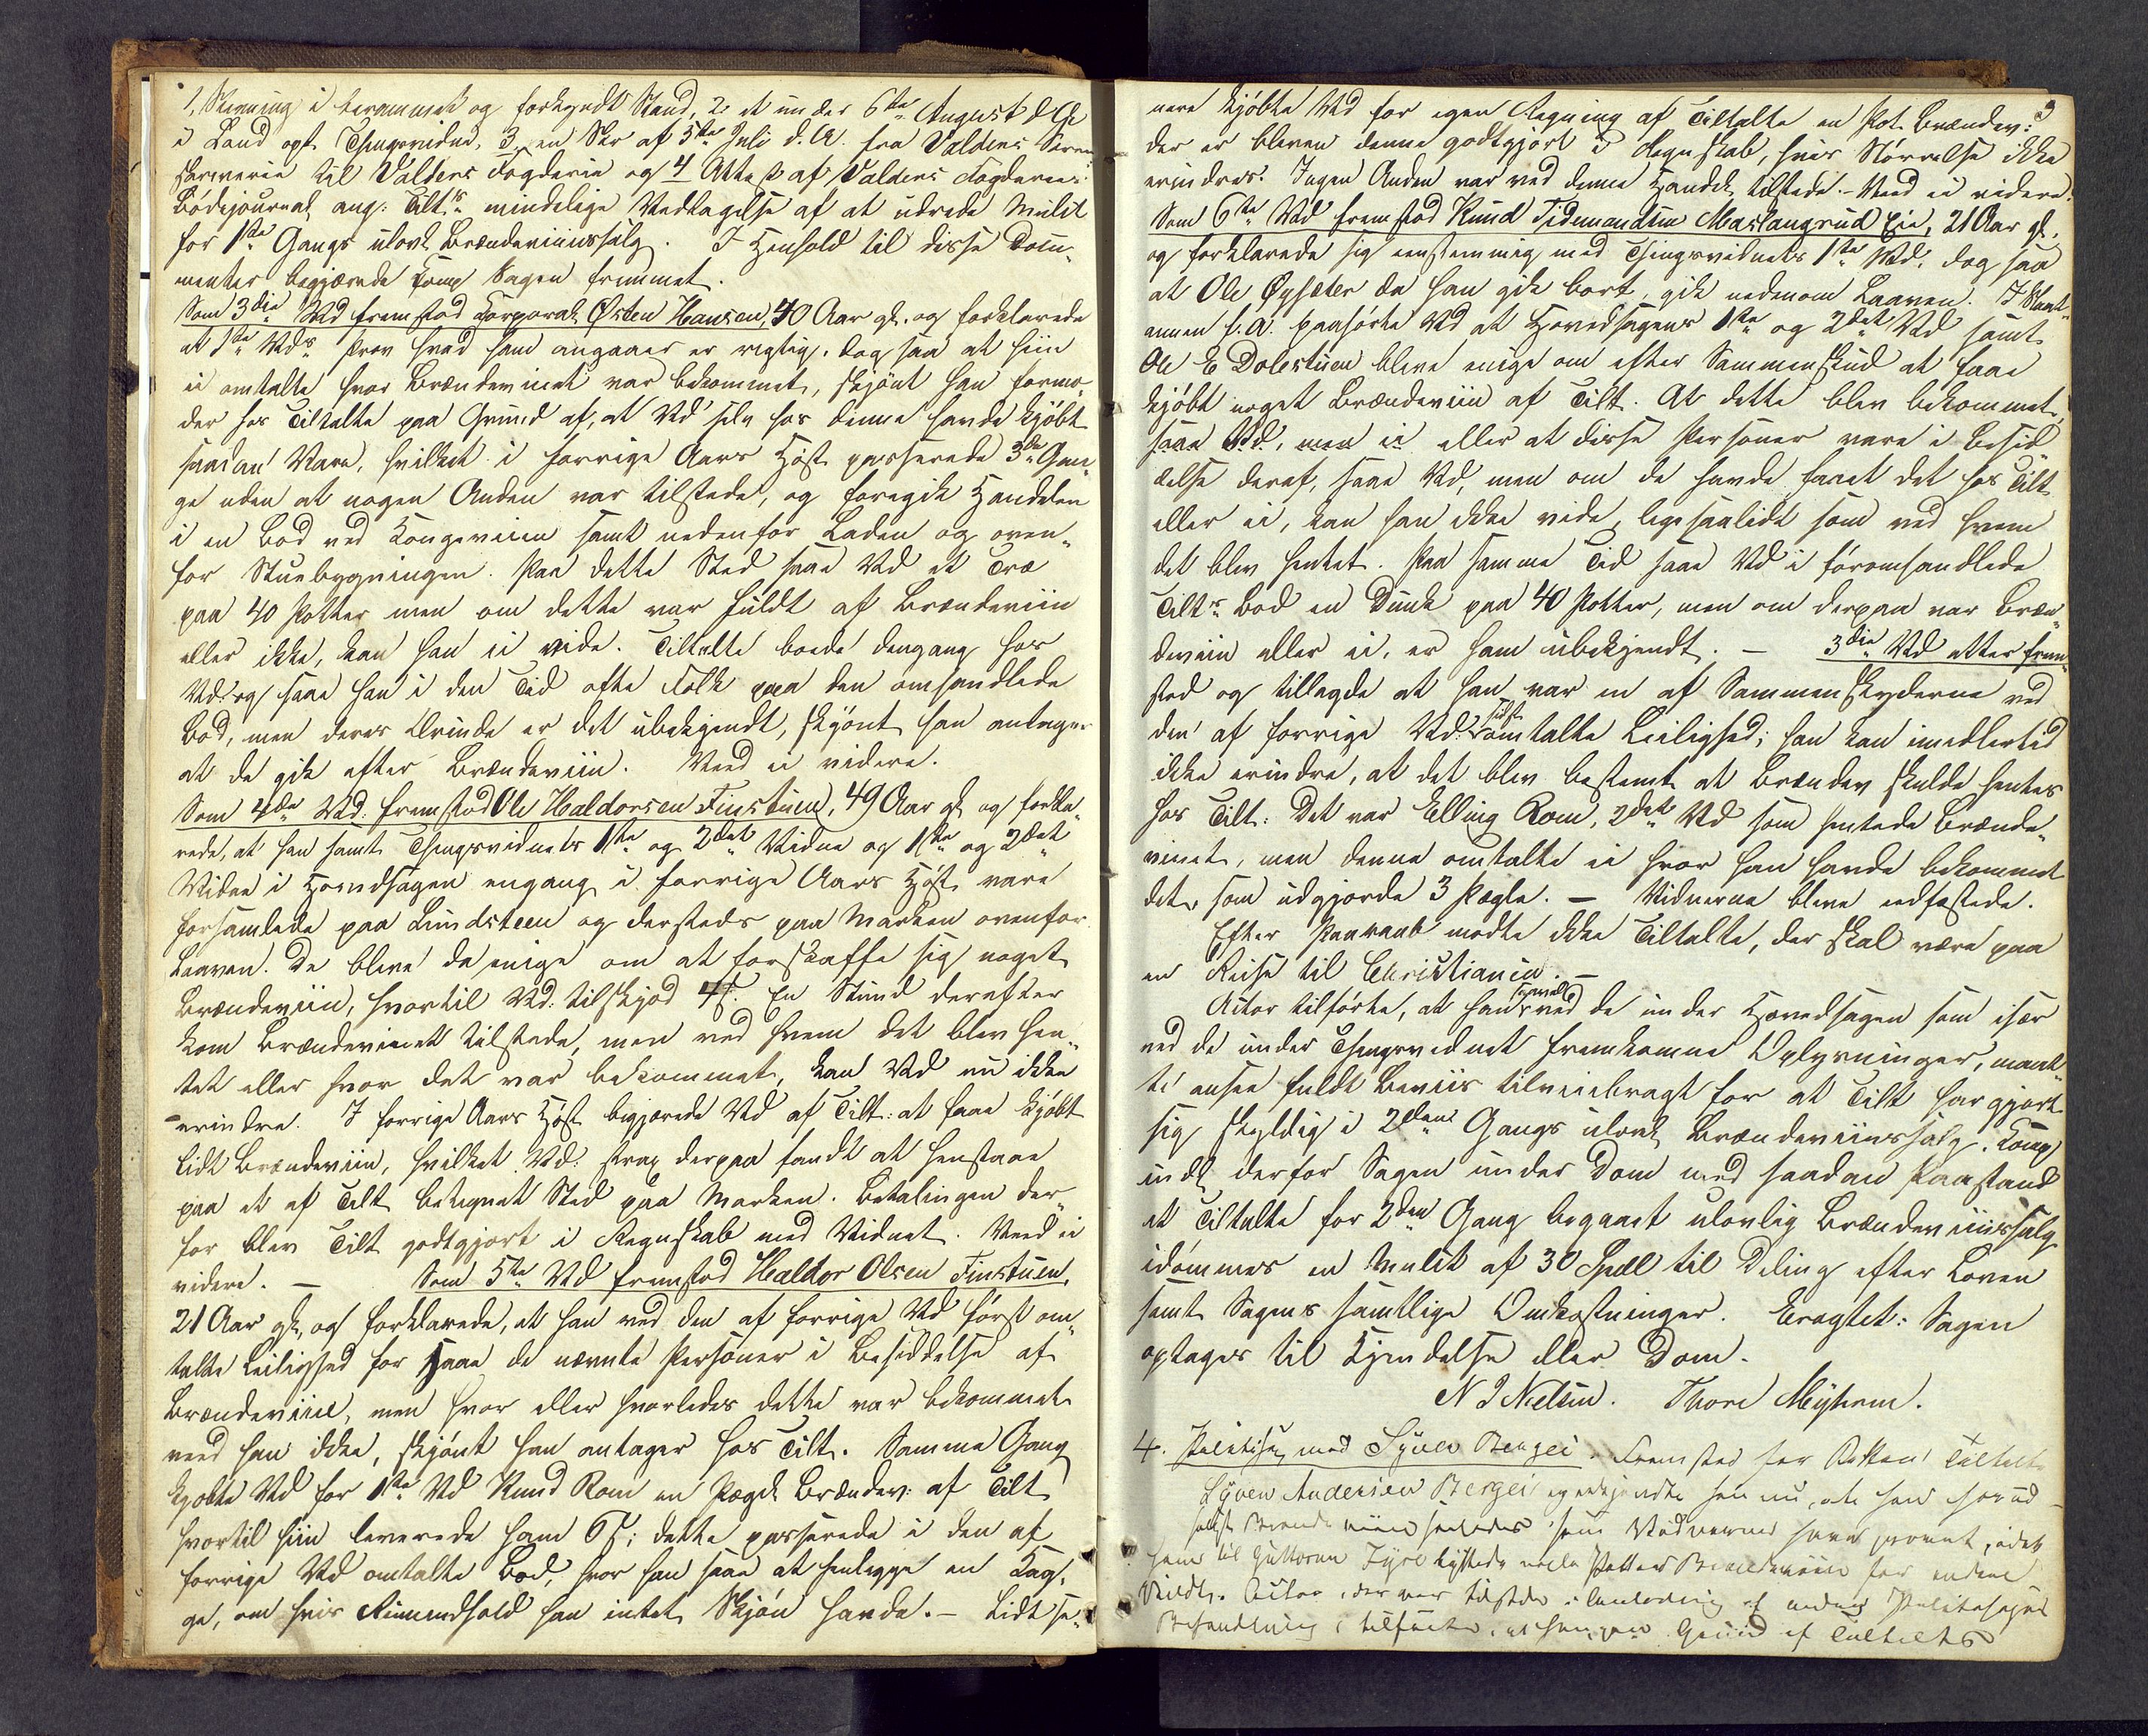 1, Stevning i berammet og forkyndt Stand, 2 et under 6te August d. A.
i Land opt. Thingsvidne, 3, en Skr af 5te Juli d. A. fra Valders Soren-
skriverie til Valders Fogderie og 4 Attest af Valders Fogderies
Bödejournal ang. Tilts mindelige Vedtagelse af at udrede Mulct
for 1ste Gangs ulovl Brændeviinssalg. I Henhold til disse Docu-
menter begjærede Comp Sagen fremmet.
Som 3die Vd fremstod Corporal Østen Hansen, 40 Aar gl. og forklarede
at 1ste Vds Prov hvad ham angaaer er rigtig, dog saa at hiin
ei omtalte hvor Brændevinet var bekommet, skjönt han formo-
der hos Tiltalte paa Grund af, at Vd selv hos denne havde kjöbt
saadan Vare, hvilket i forrige Aars Höst passerede 3de Gan-
ge uden at nogen Anden var tilstede, og foregik Handelen
i en Bod ved Kongeveien samt nedenfor Laden og oven-
for Stuebygningen. Paa dette Sted saae Vd et Træ
paa 40 Potter men om dette var fuldt af Brændeviin
eller ikke, kan han ei vide. Tiltalte boede dengang hos
Vd og saae han i den Tid ofte Folk paa den omhandlede
Bod, men deres Ærinde er det ubekjendt, skjönt han antager
at de gik efter Brændeviin. Veed ei videre.
Som 4de Vd. fremstod Ole Haldorsen Finstuen, 49 Aar gl og forkla-
rede, at han samt Thingsvidnets 1ste og 2det Vidne og 1ste og 2det
Vidne i Hovedsagen engang i forrige Aars Höst vare
forsamlede paa Lundsteen og dersteds paa Marken ovenfor
Laaven. De bleve da enige om at forskaffe sig noget
Brændeviin, hvortil Vd. tilskjød 4 ß. En Stund derefter
kom Brændevinet tilstede, men ved hvem det blev hen-
tet eller hvor det var bekommet, kan Vd nu ikke
erindre. I forrige Aars Höst begjærede Vd af Tilt: at faae kjöbt
lidt Brændeviin, hvilket Vd. strax derpaa fandt at henstaae
paa et af Tilt betegnet Sted paa Marken. Betalingen der-
for blev Tilt godtgjort i Regnskab med Vidnet. Veed ei
videre. — Som 5te Vd fremstod Haldor Olsen Finstuen,
21 Aar gl, og forklarede, at han ved den af forrige Vd först om-
talte Leilighed for saae de nævnte Personer i Besiddelse af
Brændeviin, men hvor eller hvorledes dette var bekommet
veed han ikke, skjönt han antager hos Tilt. Samme Gang
kjöbte Vd for 1ste Vd Knud Rom en Pægel Brændev: af Tilt
hvortil hiin leverede ham 6 ß; dette passerede i den af
forrige Vd omtalte Bod, hvor han saae at henligge en Kag-
ge, om hvis Rumindhold han intet Skjön havde. — Lidt se-
nere kjöbte Vd for egen Regning af Tiltalte en Pot Brændev:
der er bleven denne godtgjort i Regnskab, hvis Störrelse ikke
erindres. Ingen Anden var ved denne Handel tilstede. — Veed ei videre.
Som 6te Vd fremstod Knud Tidemandsen Maslangrud Eie, 21 Aar gl.
og forklarede sig eenstemmig med Thingsvidnets 1ste Vd, dog saa
at Ole Øgsæter da han gik bort, gik nedenom Laaven. I
paaförte Vd at Hovedsagens 1ste og 2det Vd samt
Ole E Dolestuen bleve enige om efter Sammenskud at faae
kjöbt noget Brændeviin af Tilt. At dette blev bekommet,
saae Vd, men ei eller at disse Personer vare i Besid-
delse deraf, saae Vd, men om de havde faaet det hos Tilt
eller ei, kan han ikke vide, ligesaalidt som ved hvem
det blev hentet. Paa samme Tid saae Vd i föromhandlede
Tilts Bod en Dunk paa 40 Potter, men om derpaa var Bræn-
deviin eller ei, er ham ubekjendt. — 3die Vd atter frem-
stod og tillagde at han var en af Sammenskyderne ved
den af forrige Vd. sidst omtalte Leilighed; han kan imedlertid
ikke erindre, at det blev bestemt at Brændev skulde hentes
hos Tilt. Det var Elling Rom, 2det Vd som hentede Brænde-
vinet, men denne omtalte ei hvor han havde bekommet
det, som udgjorde 3 Pægle. — Vidnerne bleve eedfæstede.
Efter Paaraab mødte ikke Tiltalte, der skal være paa
en Reise til Christiania. —
Actor tilförte, at han saavel ved de under Hovedsagen som især
ved de under Thingsvidnet fremkomne Oplysninger, maat-
te ansee fuldt Beviis tilveiebragt for at Tilt har gjort
sig skyldig i 2den Gangs ulovl Brændeviinssalg. Comp
indl derfor Sagen under Dom med saadan Paastand
at Tiltalte for 2den Gang begaaet ulovlig Brændeviinssalg
idömmes en Mulct af 30 Spdl til Deling efter Loven
samt Sagens samtlige Omkostninger. Eragtet: Sagen
optages til Kjendelse eller Dom.
N J Nielsen. Thore Myhren.
4. Politisag mod Syver Bergei. Fremstod for Retten Tiltalte
Syver Andersen Bergei og erkjendte han nu, at han har ud-
solgt Brændeviin saaledes som Vidnerne have provet, idet
han til Guttorm
Actor, der var tilstede i Anledning af anden Politisags
Behandling, tilförte, at han paa Grund af Tiltaltes